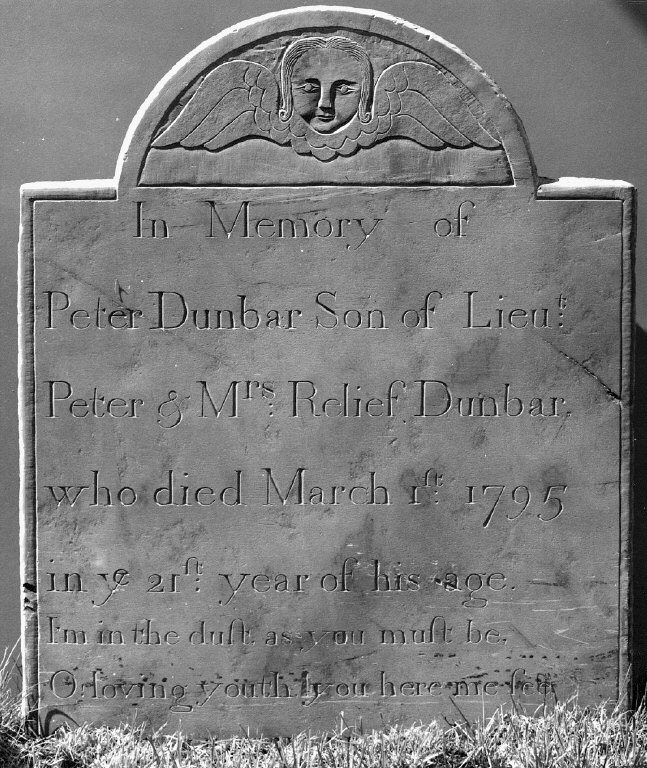 In Memory of
Peter Dunbar Son of Lieu.ᵗ
Peter & Mʳˢ. Relief Dunbar.
who died March 1ſt. 1795
in yᵉ 21ſt. year of his age.
I'm in the duſt as you muſt be,
O loving youth you here me ſee